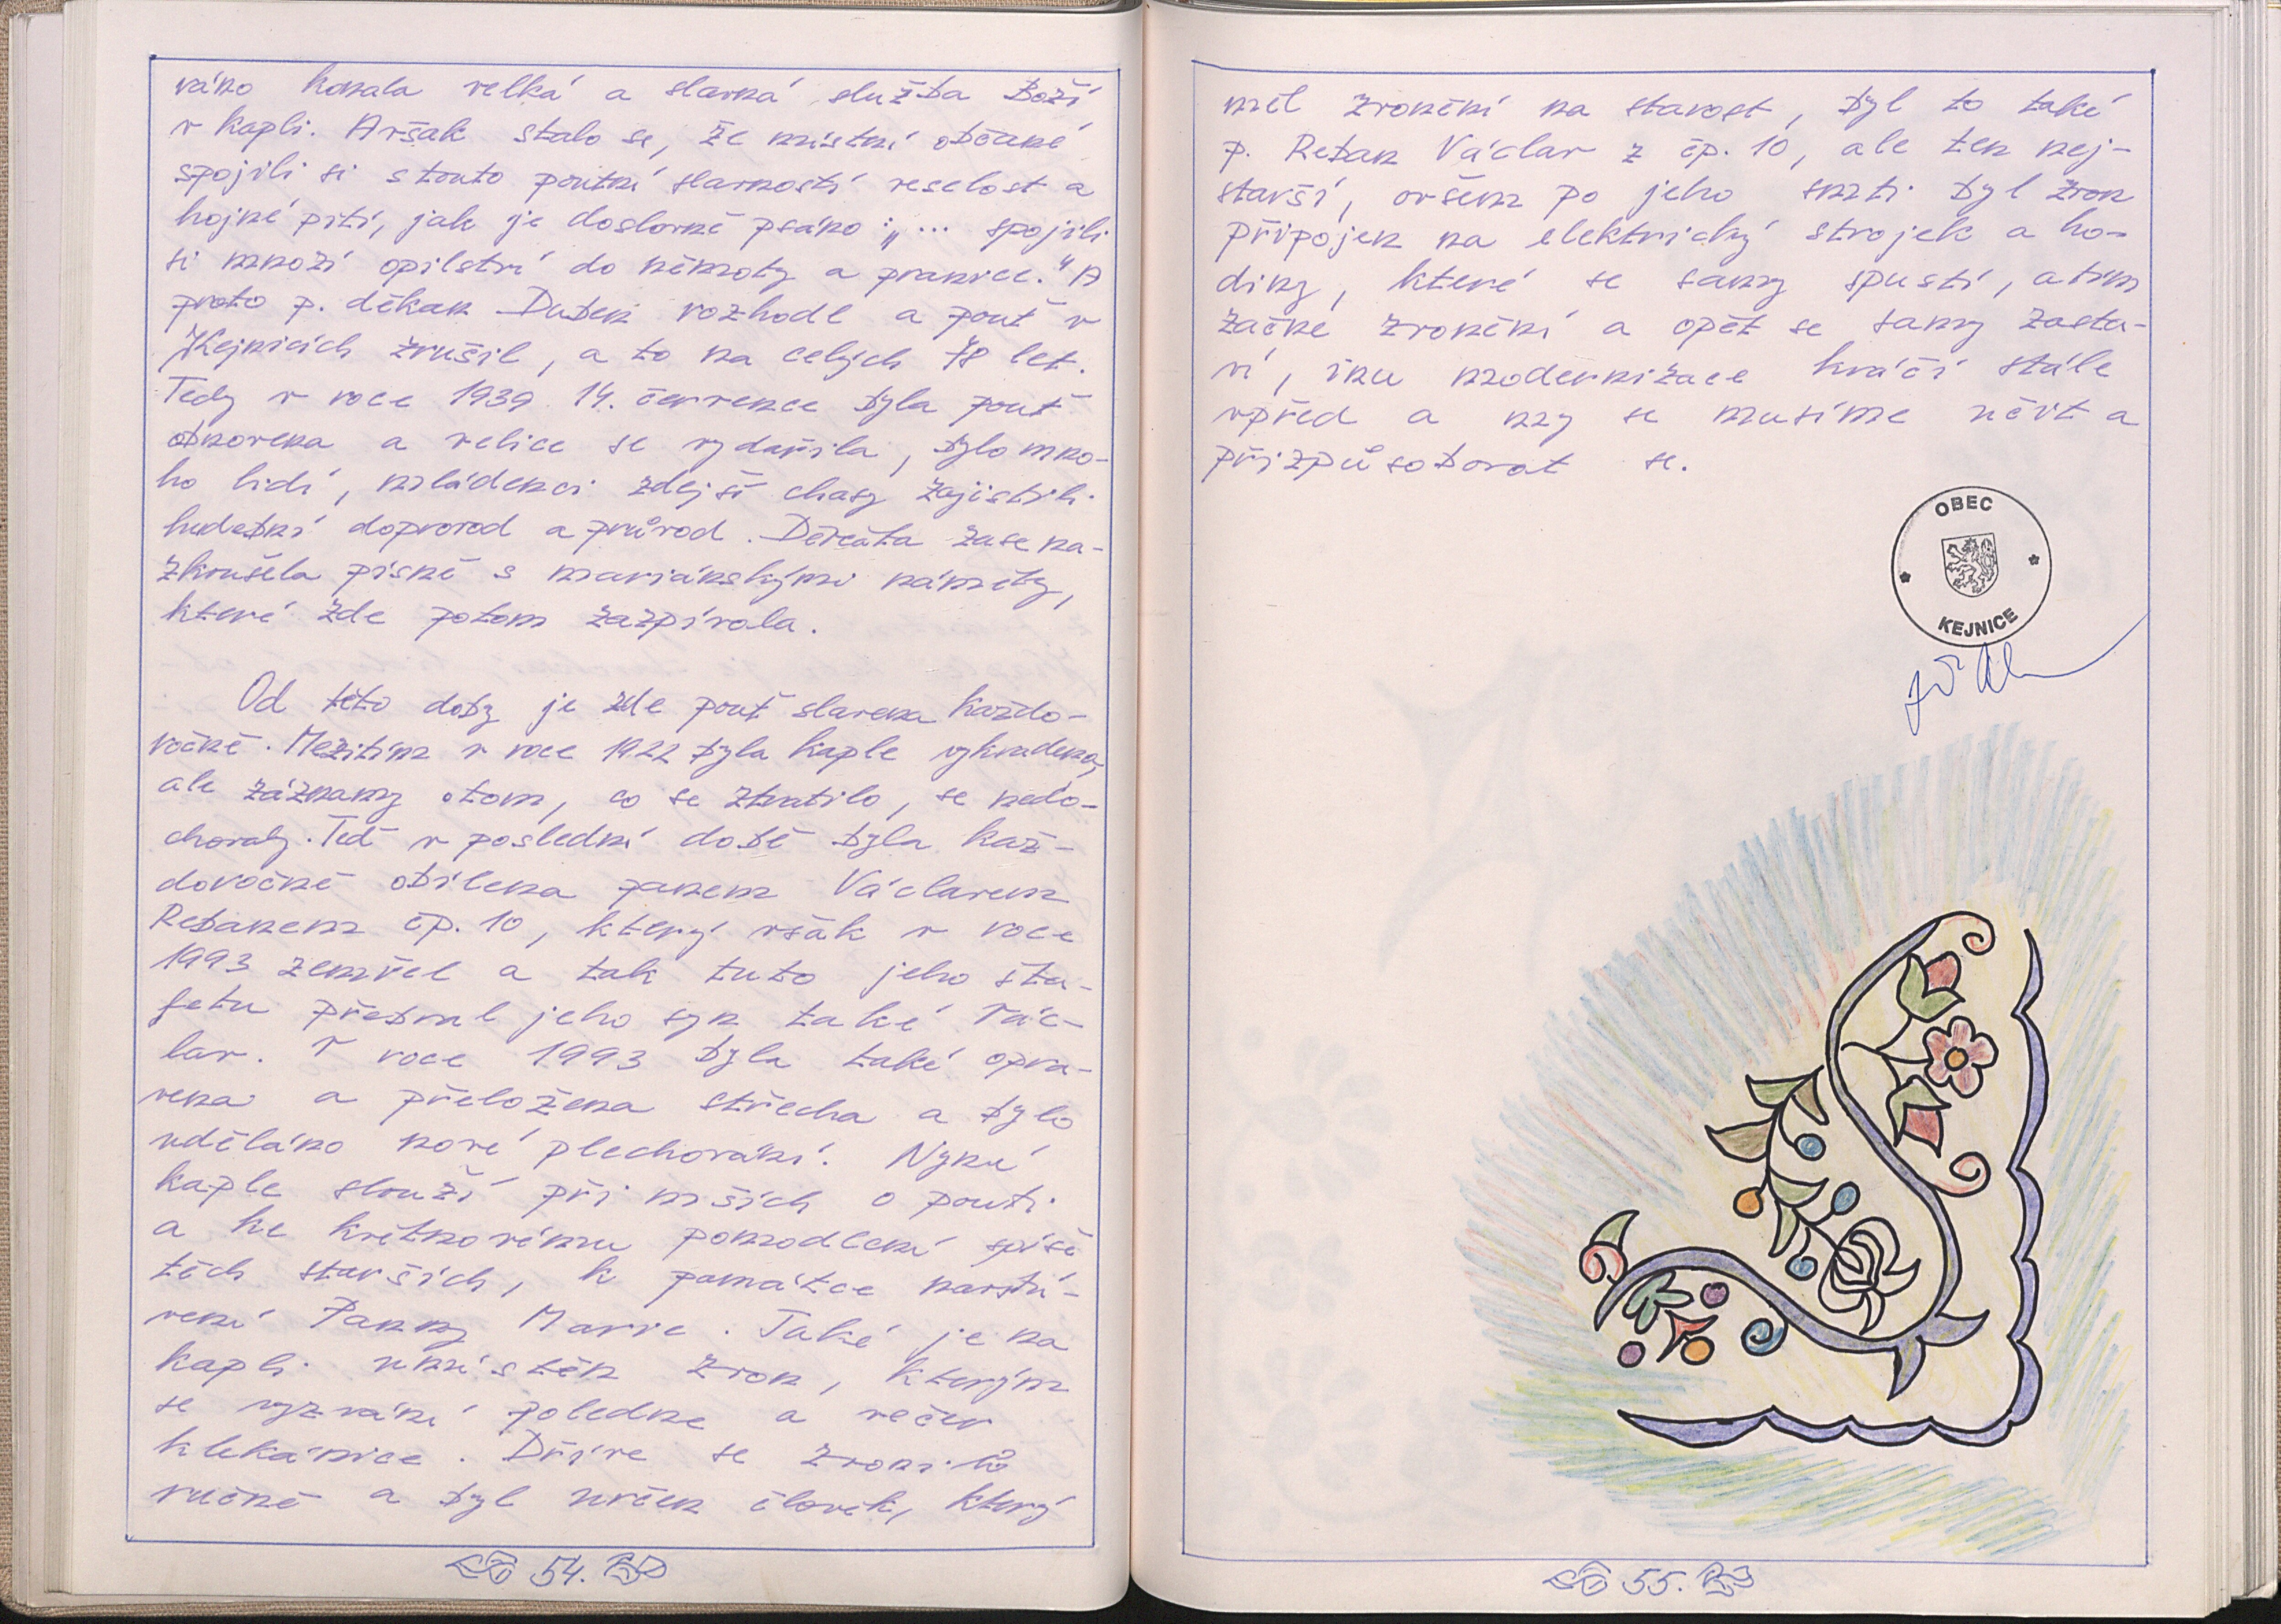 váno konala velká a slavná služba Boží
v kapli. Avšak stalo se, že místní občané
spojili si s touto poutní slavností veselost a
hojné pití, jak je doslovně psáno: „... spojili
si mnozí opilství do němoty a pranice." A
proto p. děkan Duben rozhodl a pouť v
Kejnicích zrušil, a to na celých 78 let.
Tedy v roce 1939 14. července byla pouť
obnovena a velice se vydařila, bylo mno-
ho lidí, mládenci zdejší chasy zajistili
hudební doprovod a průvod. Děvčata zase na-
zkoušela písně s mariánskými náměty,
které zde potom zazpívala.
Od této doby je zde pouť slavena každo-
ročně. Mezitím v roce 1922 byla kaple vykradena,
ale záznamy o tom, co se ztratilo, se nedo-
chovaly. Teď v poslední době byla kaž-
doročně obílena panem Václavem
Rebanem čp. 10, který však v roce
1993 zemřel a tak tuto jeho šta-
fetu přebral jeho syn také Vác-
lav. V roce 1993 byla také opra-
vena a přeložena střecha a bylo
uděláno nové plechování. Nyní
kaple slouží při mších o pouti
a ke květnovému pomodlení spíše
těch starších, k památce navští-
vení Panny Marie. Také je na
kapli umístěn zvon, kterým
se vyzvání poledne a večer
klekánice. Dříve se zvonilo
ručně a byl určen člověk, který
54.
měl zvonění na starost, byl to také
p. Reban Václav z čp. 10, ale ten nej-
starší, ovšem po jeho smrti byl zvon
připojen na elektrický strojek a ho-
diny, které se samy spustí, a tím
začne zvonění a opět se samy zasta-
ví, inu modernizace kráčí stále
vpřed a my se musíme učit a
přizpůsobovat se.
OBEC
KEJNICE
55.